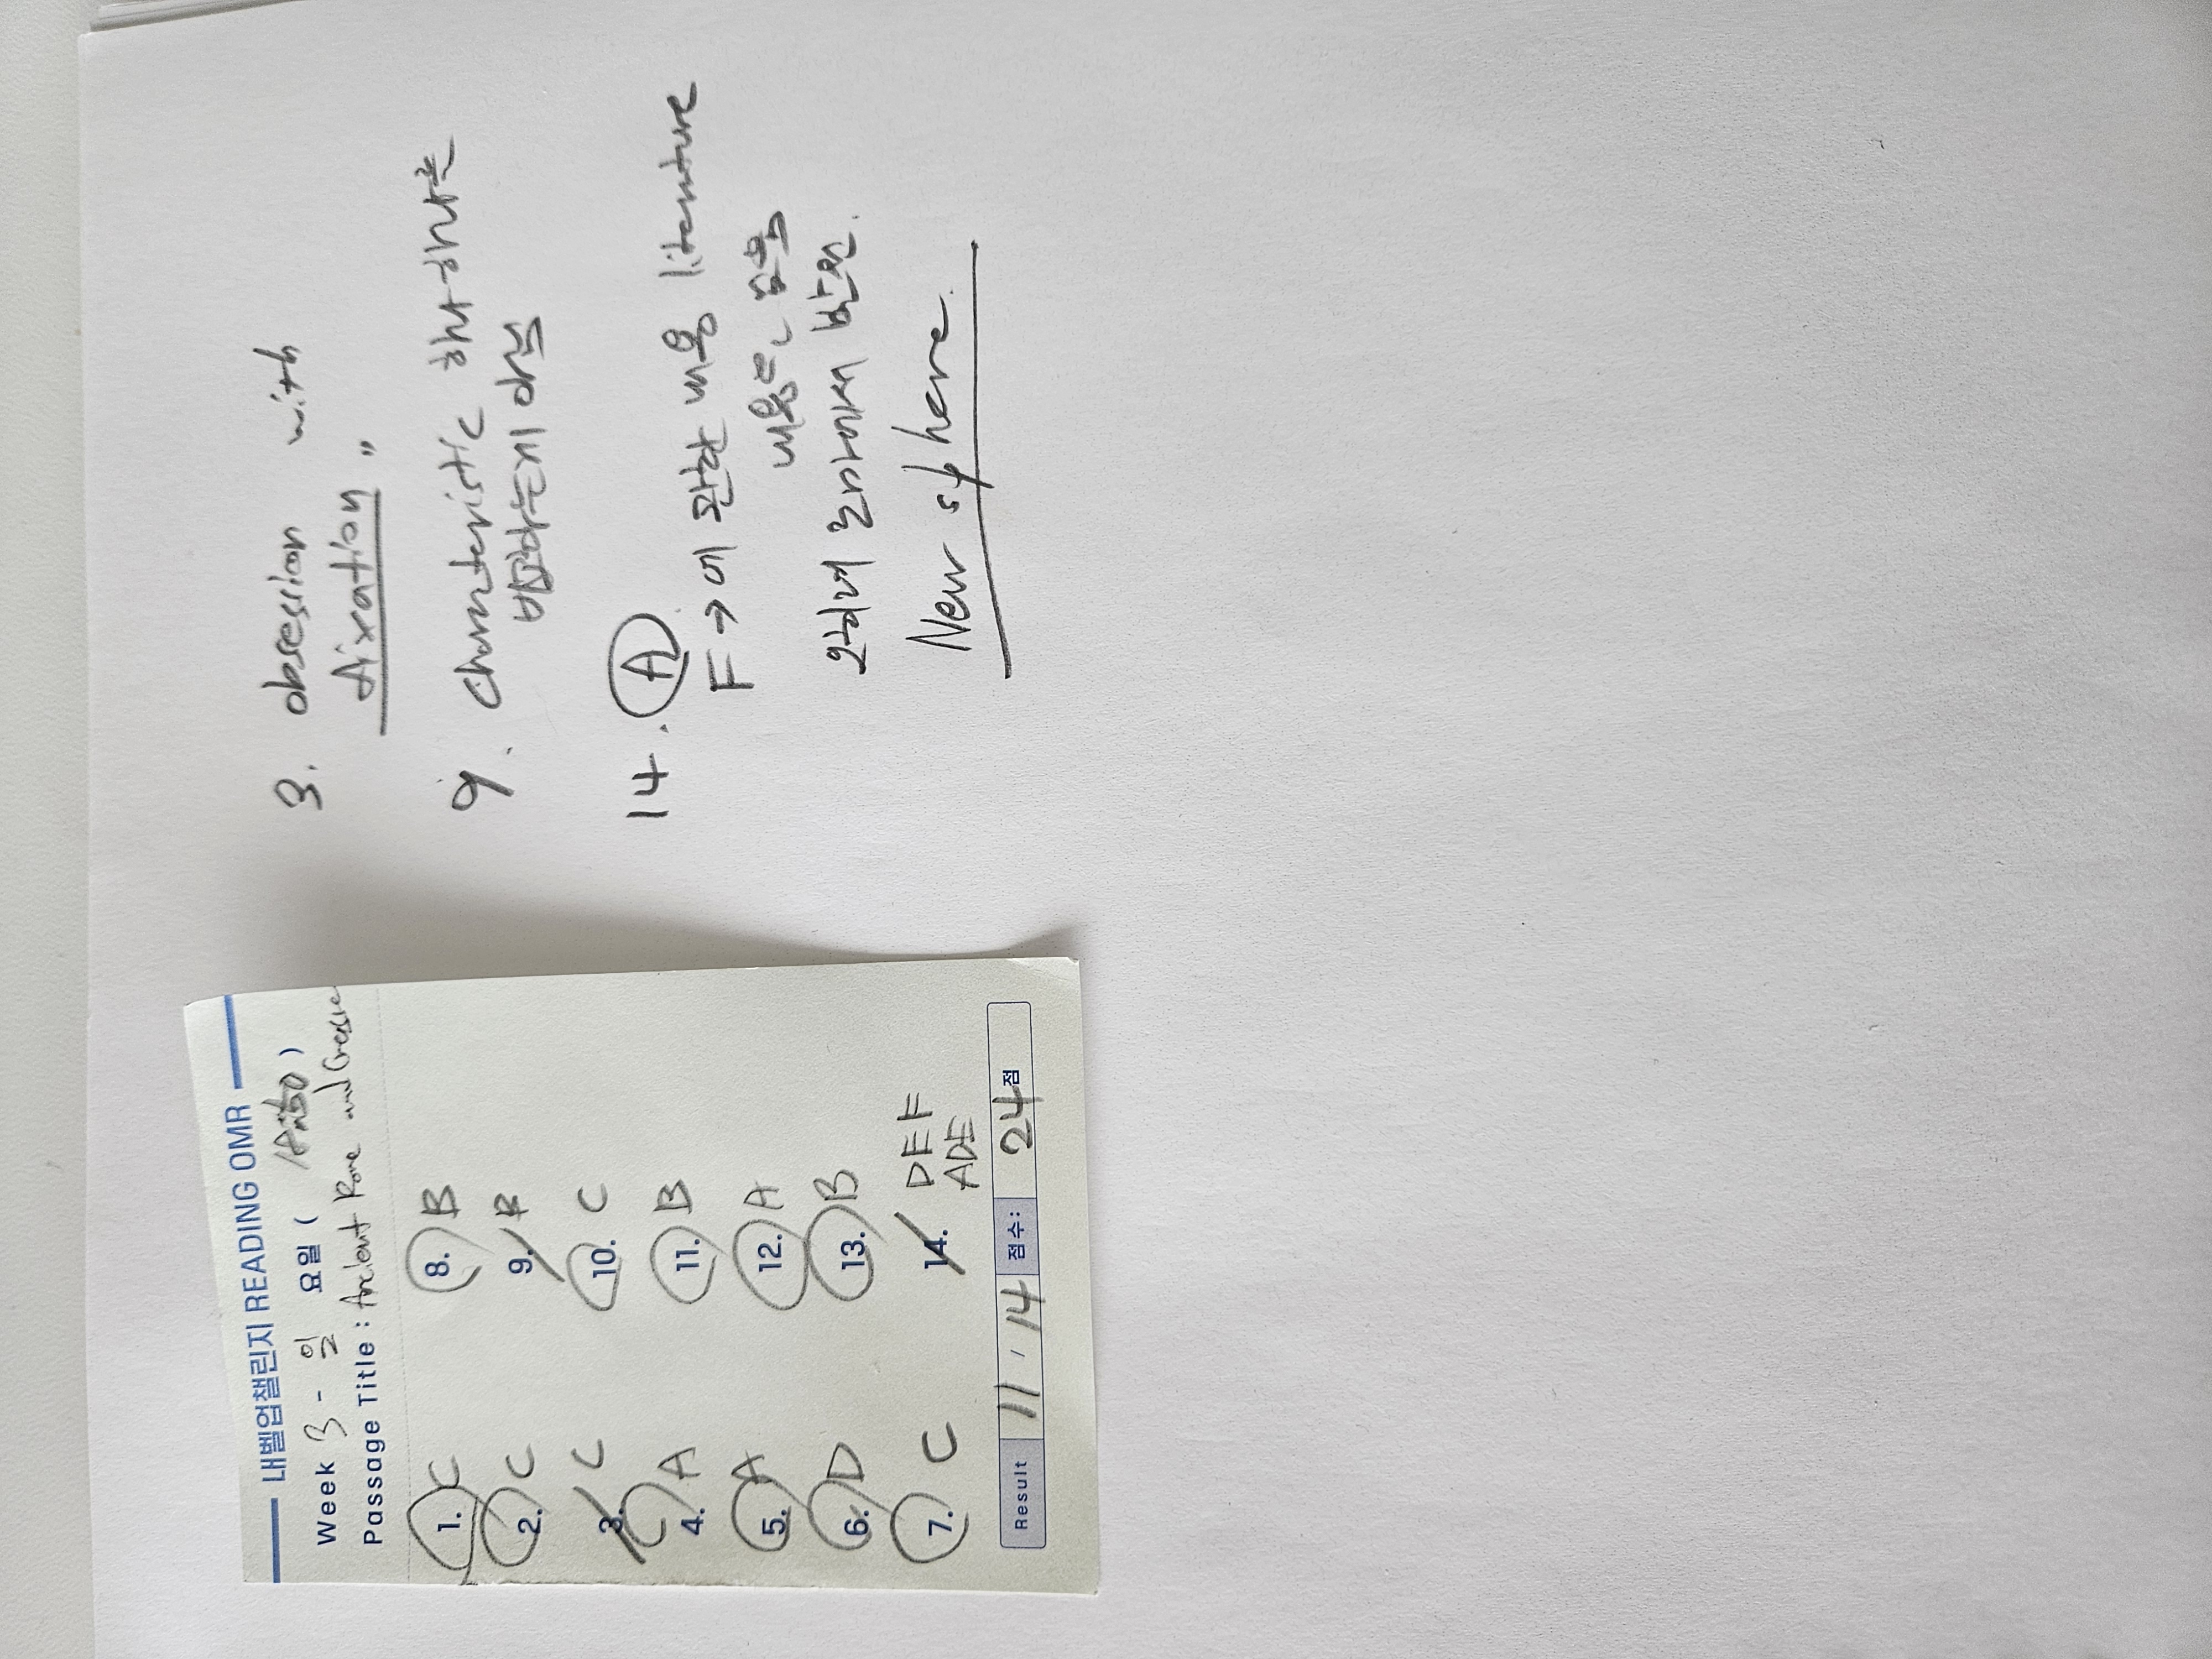 내벨업챌린지 READING OMR
Week 3 - 일 요일 (
Passage Title : Ancient Rome and Greece
1. C
2. C
3. C
4. A
5. A
6. D
7. C
8. B
9.
10. C
11. B
12. A
13. B
14. DEF
ADE
Result 11 / 14 점수: 24점
3. obsession with
fixation "
9. characteristic 하나하나를
14. A
F → 에 관한 내용 literature
내용은, 음악
로마에서 발전.
New sphere.